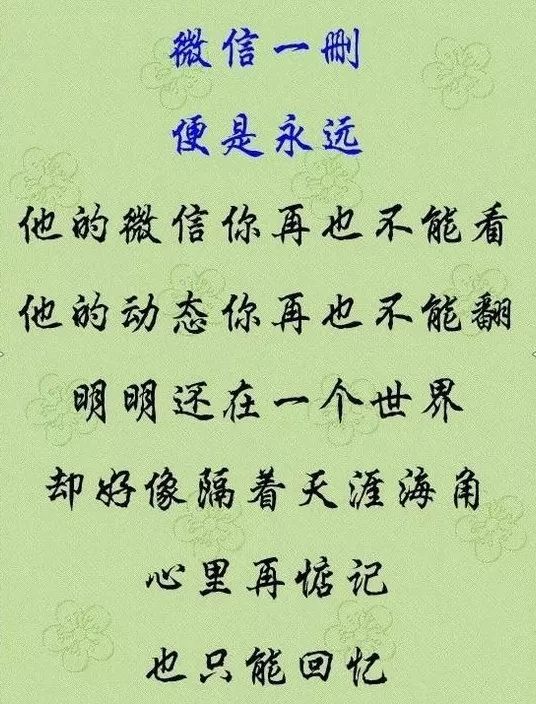 微信一删
便是永远
他的微信你再也不能看
他的动态你再也不能翻
明明还在一个世界
却好像隔着天涯海角
心里再惦记
也只能回忆